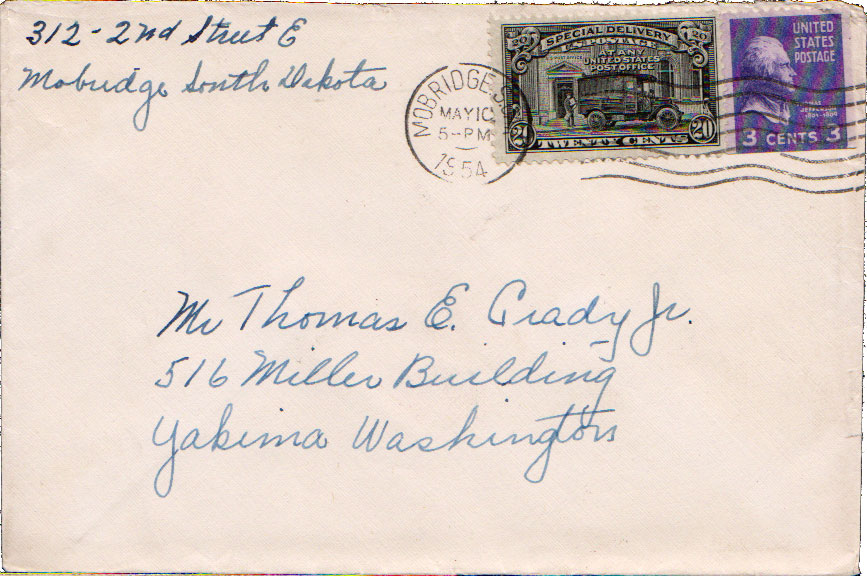 312 - 2nd Street E
Mobridge South Dakota
MOBRIDGE, S.
MAY 10
5-PM
1954
20 SPECIAL DELIVERY 20
U.S. POSTAGE
AT ANY
UNITED STATES
POST OFFICE
20 TWENTY CENTS 20
UNITED
STATES
POSTAGE
JEFFERSON
1801-1809
3 CENTS 3
Mr Thomas E. Grady Jr.
516 Miller Building
Yakima Washington